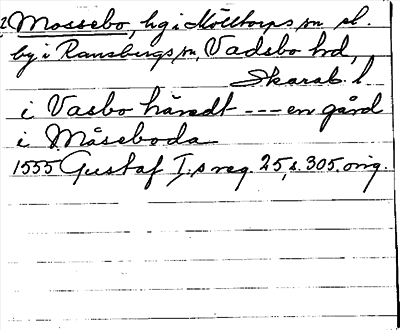 2 Mossebo, hg i Mölltorps sn sl.
by i Ransbergs sn, Vadsbo hd,
Skarab. l
i Vasbo häredt --- en gård
i Måseboda
1555 Gustaf I:s reg. 25, s. 305. orig.